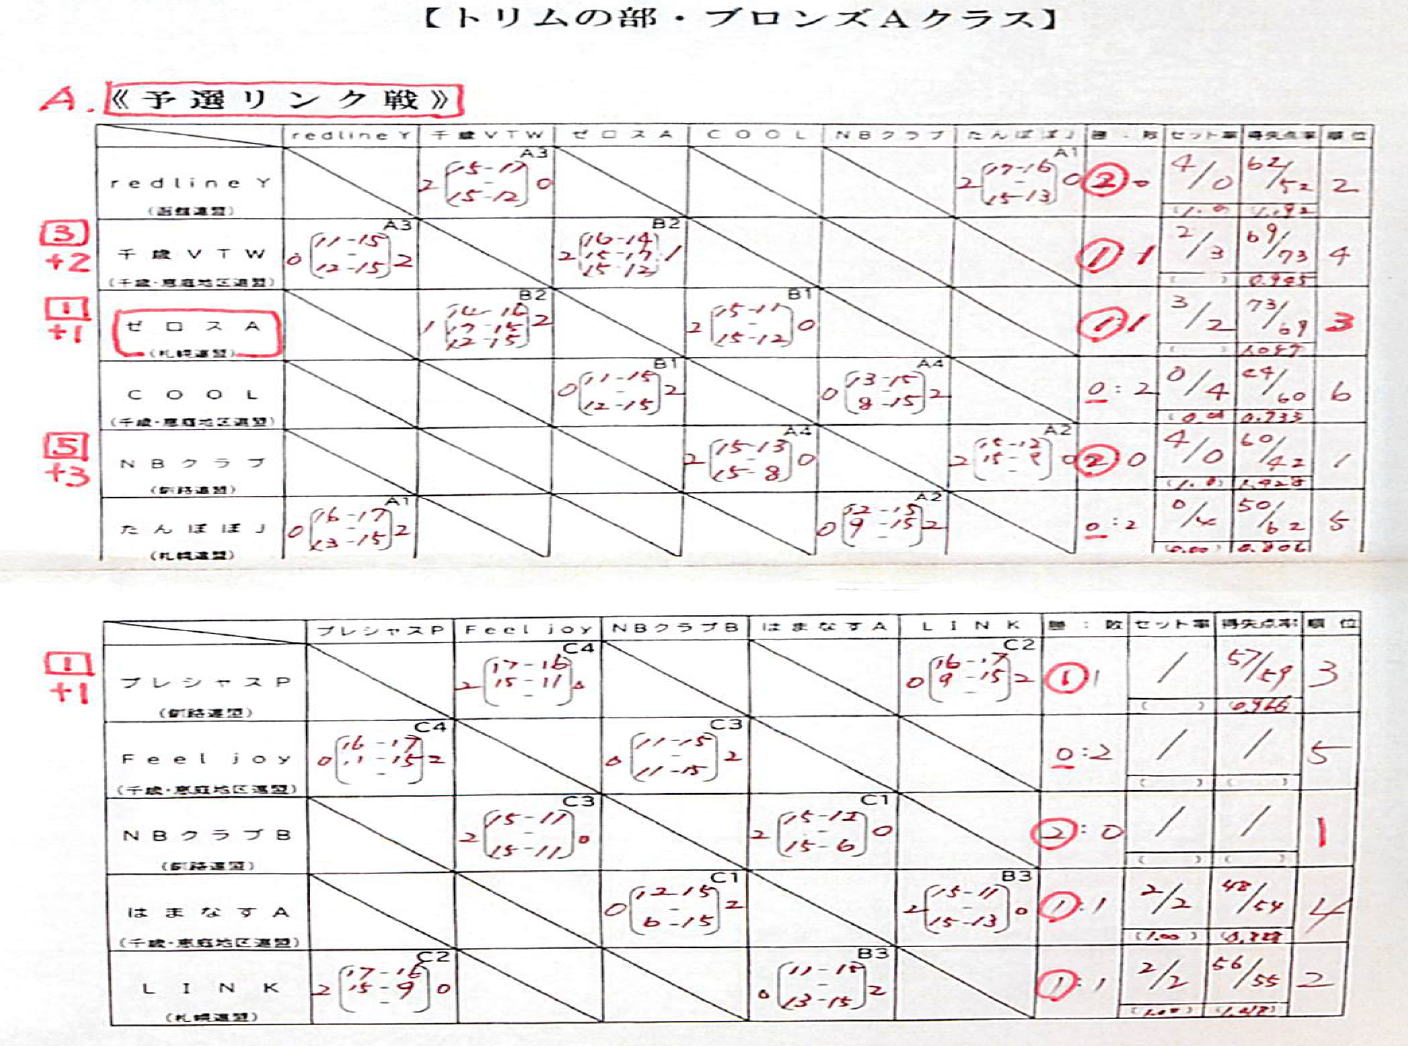 【トリムの部・ブロンズAクラス】
A.《予選リンク戦》
redlineY 千歳VTW ゼロスA COOL NBクラブ たんぽぽJ 勝:敗 セット率 得失点率 順位
redlineY (函館連盟) A3 2 15-17 - 15-12 0 A1 2 17-16 - 15-13 0 ② 0 4/0 62/52 2
3 +2 千歳VTW (千歳・恵庭地区連盟) A3 0 11-15 - 12-15 2 B2 2 16-14 15-17 15-12 1 ① 1 2/3 69/73 0.945 4
1 +1 ゼロスA (札幌連盟) B2 1 14-16 17-15 12-15 2 B1 2 15-11 - 15-12 0 ① 1 3/2 73/69 3
COOL (千歳・恵庭地区連盟) B1 0 11-15 - 12-15 2 A4 0 13-15 8-15 - 2 0:2 0/4 44/60 0.733 6
5 +3 NBクラブ (釧路連盟) A4 2 15-13 - 15-8 0 A2 2 15-12 15-9 - 0 ②:0 4/0 60/42 1
たんぽぽJ (札幌連盟) A1 0 16-17 - 13-15 2 A2 0 12-15 9-15 - 2 0:2 0/4 (0.00) 50/62 0.806 5
プレシャスP Feel joy NBクラブB はまなすA LINK 勝:敗 セット率 得失点率 順位
1 +1 プレシャスP (釧路連盟) C4 2 17-16 15-11 - 0 C2 0 16-17 9-15 - 2 ① 1 / 57/59 0.966 3
Feel joy (千歳・恵庭地区連盟) C4 0 16-17 11-15 - 2 C3 0 11-15 - 11-15 2 0:2 / / 5
NBクラブB (釧路連盟) C3 2 15-11 - 15-11 0 C1 2 15-12 - 15-6 0 ②:0 / / 1
はまなすA (千歳・恵庭地区連盟) C1 0 12-15 - 6-15 2 B3 2 15-11 - 15-13 0 ①:1 2/2 (1.00) 48/54 4
LINK (札幌連盟) C2 2 17-16 15-9 - 0 B3 0 11-15 - 13-15 2 ①:1 2/2 56/55 2